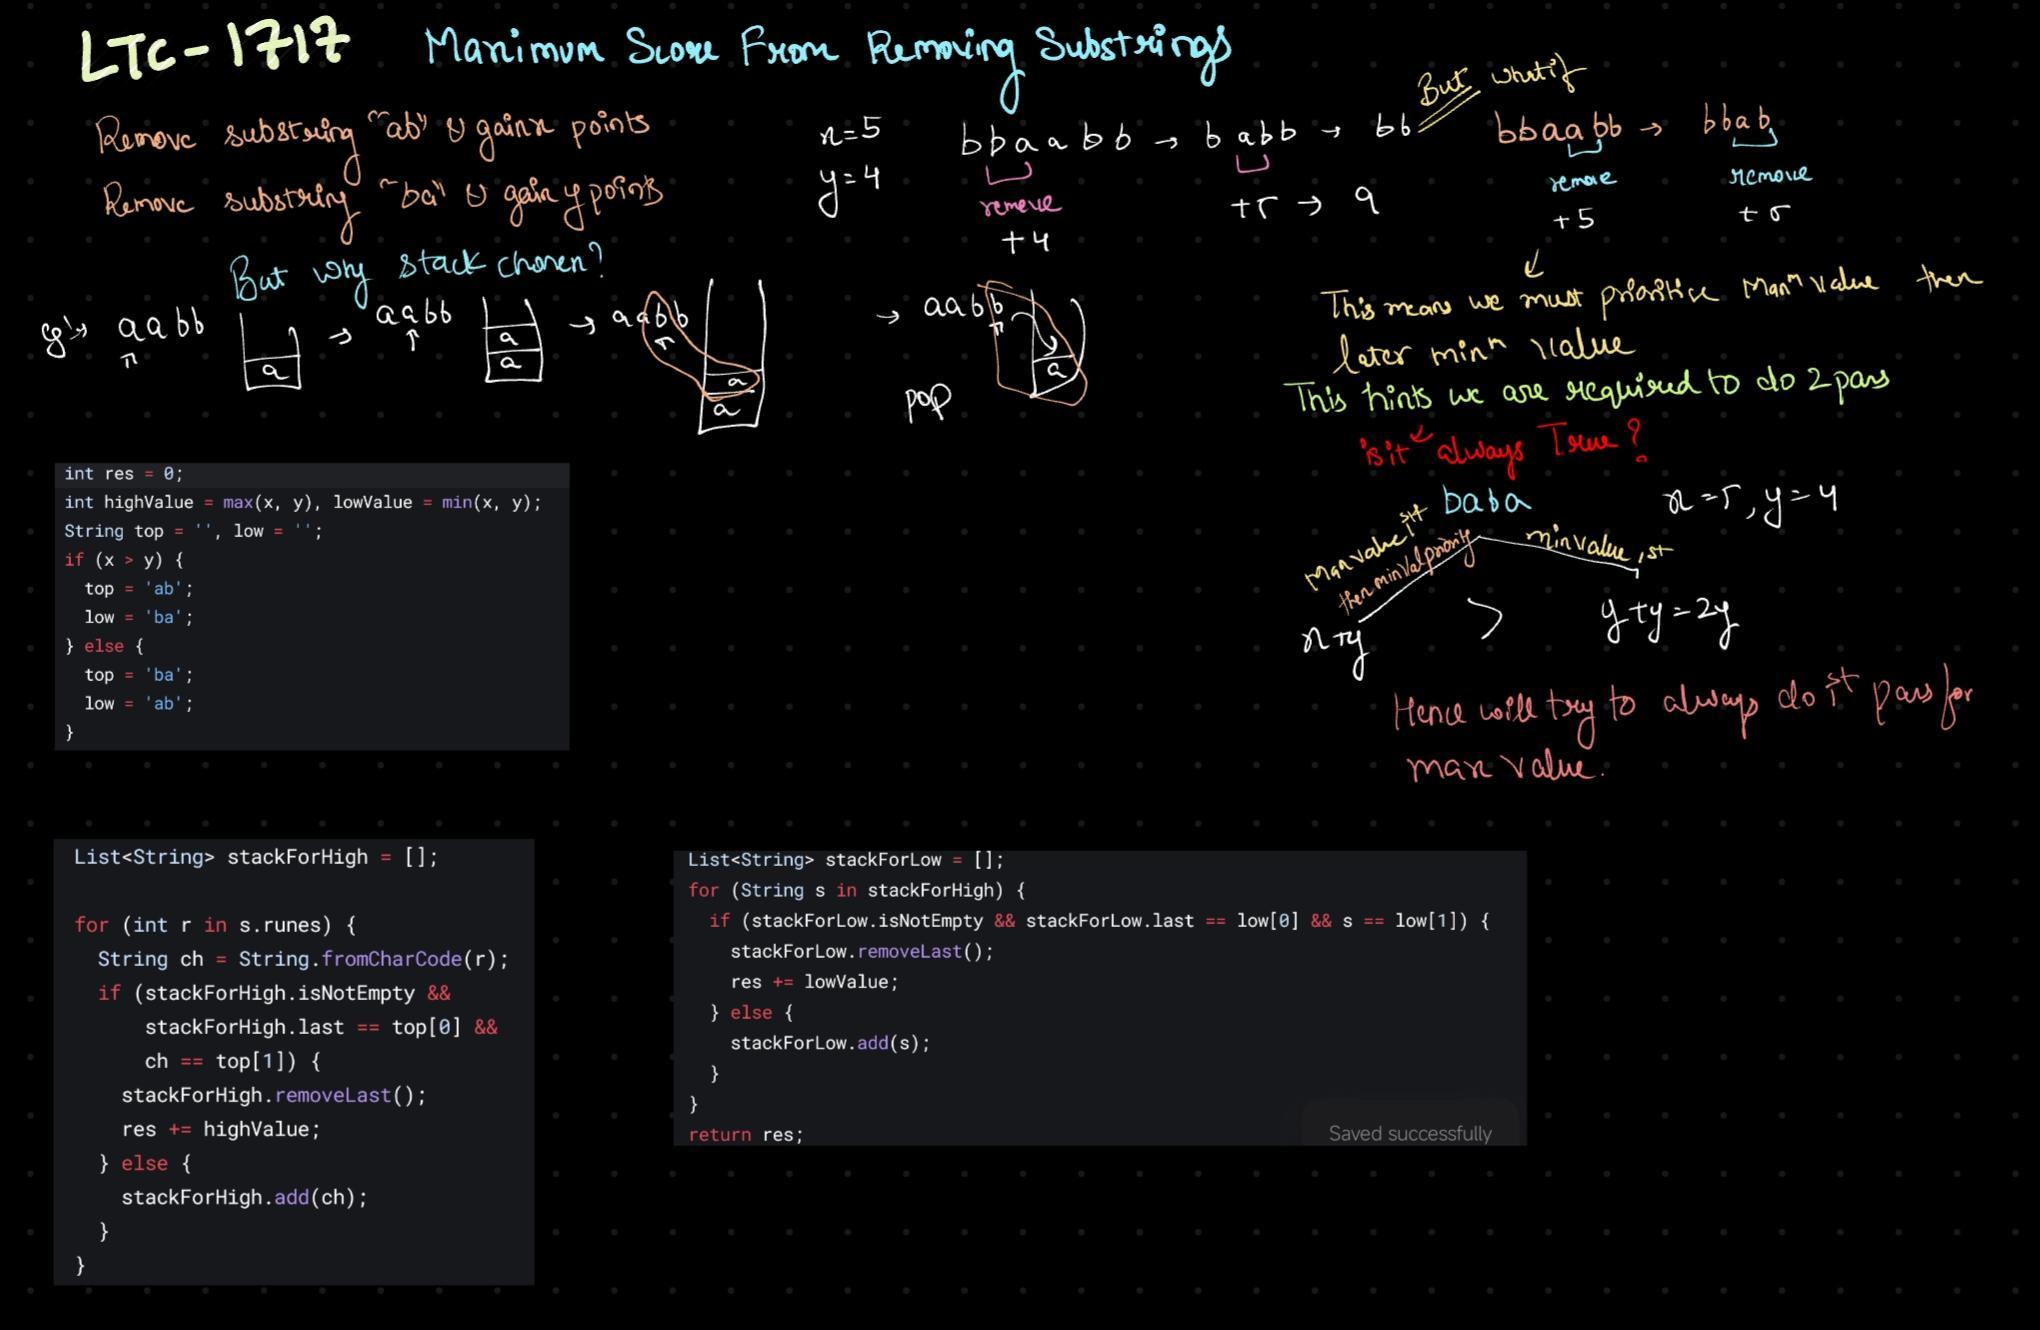 LTC-1717 Maximum Score From Removing Substrings
Remove substring "ab" & gain x points
Remove substring "ba" & gain y points
x=5
y=4
bbaabb → babb → bb
remove
+4
+5 → 9
But what if
bbaabb → bbab
remove
+5
remove
+5
This means we must prioritise Maxm value then
later minm value
This hints we are required to do 2 pass
is it always True?
baba x=5, y=4
Max value 1st
then min val priority
min value 1st
x+y > y+y=2y
Hence will try to always do 1st pass for
max value.
But why stack chosen?
eg:→ aabb
a
→ aabb
a
a
→ aabb
a
a
→ aabb
a
pop
int res = 0;
int highValue = max(x, y), lowValue = min(x, y);
String top = '', low = '';
if (x > y) {
top = 'ab';
low = 'ba';
} else {
top = 'ba';
low = 'ab';
}
List<String> stackForHigh = [];
for (int r in s.runes) {
String ch = String.fromCharCode(r);
if (stackForHigh.isNotEmpty &&
stackForHigh.last == top[0] &&
ch == top[1]) {
stackForHigh.removeLast();
res += highValue;
} else {
stackForHigh.add(ch);
}
}
List<String> stackForLow = [];
for (String s in stackForHigh) {
if (stackForLow.isNotEmpty && stackForLow.last == low[0] && s == low[1]) {
stackForLow.removeLast();
res += lowValue;
} else {
stackForLow.add(s);
}
}
return res;
Saved successfully